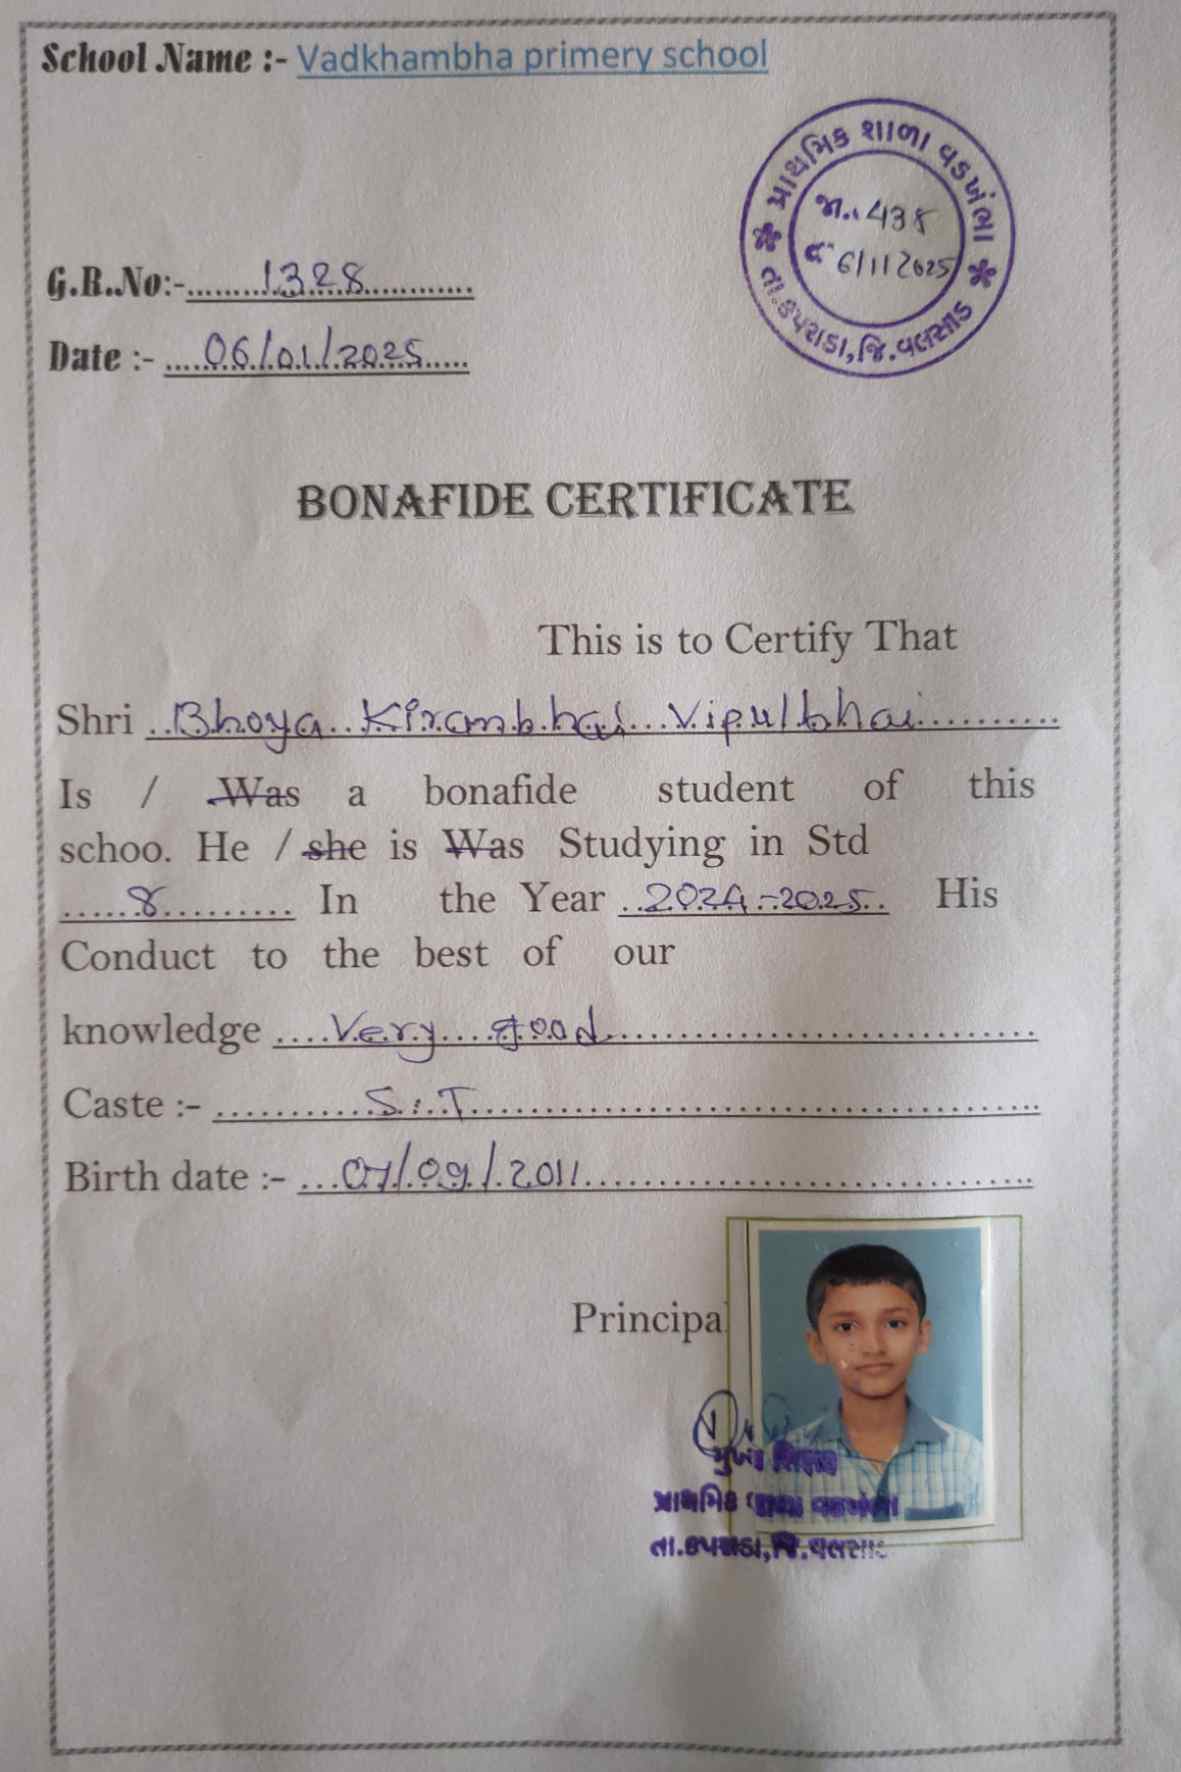 School Name :- Vadkhambha primery school
પ્રાથમિક શાળા વડખંભા
જા.. 438
તા. 6/1/2025
તા.કપરાડા,જિ.વલસાડ
G.R.No:-........1328...........
Date :- ....06/01/2025.....
BONAFIDE CERTIFICATE
This is to Certify That
Shri ..Bhoya..Kiranbhai...Vipulbhai..........
Is / Was a bonafide student of this
schoo. He / she is Was Studying in Std
......8......... In the Year ..2024-2025.. His
Conduct to the best of our
knowledge ....Very....good..............................
Caste :- ...........S.:.T.......................................
Birth date :- ...07/09/2011...............................
Principal
મુખ્ય શિક્ષક
પ્રાથમિક શાળા વડખંભા
તા.કપરાડા,જિ.વલસાડ